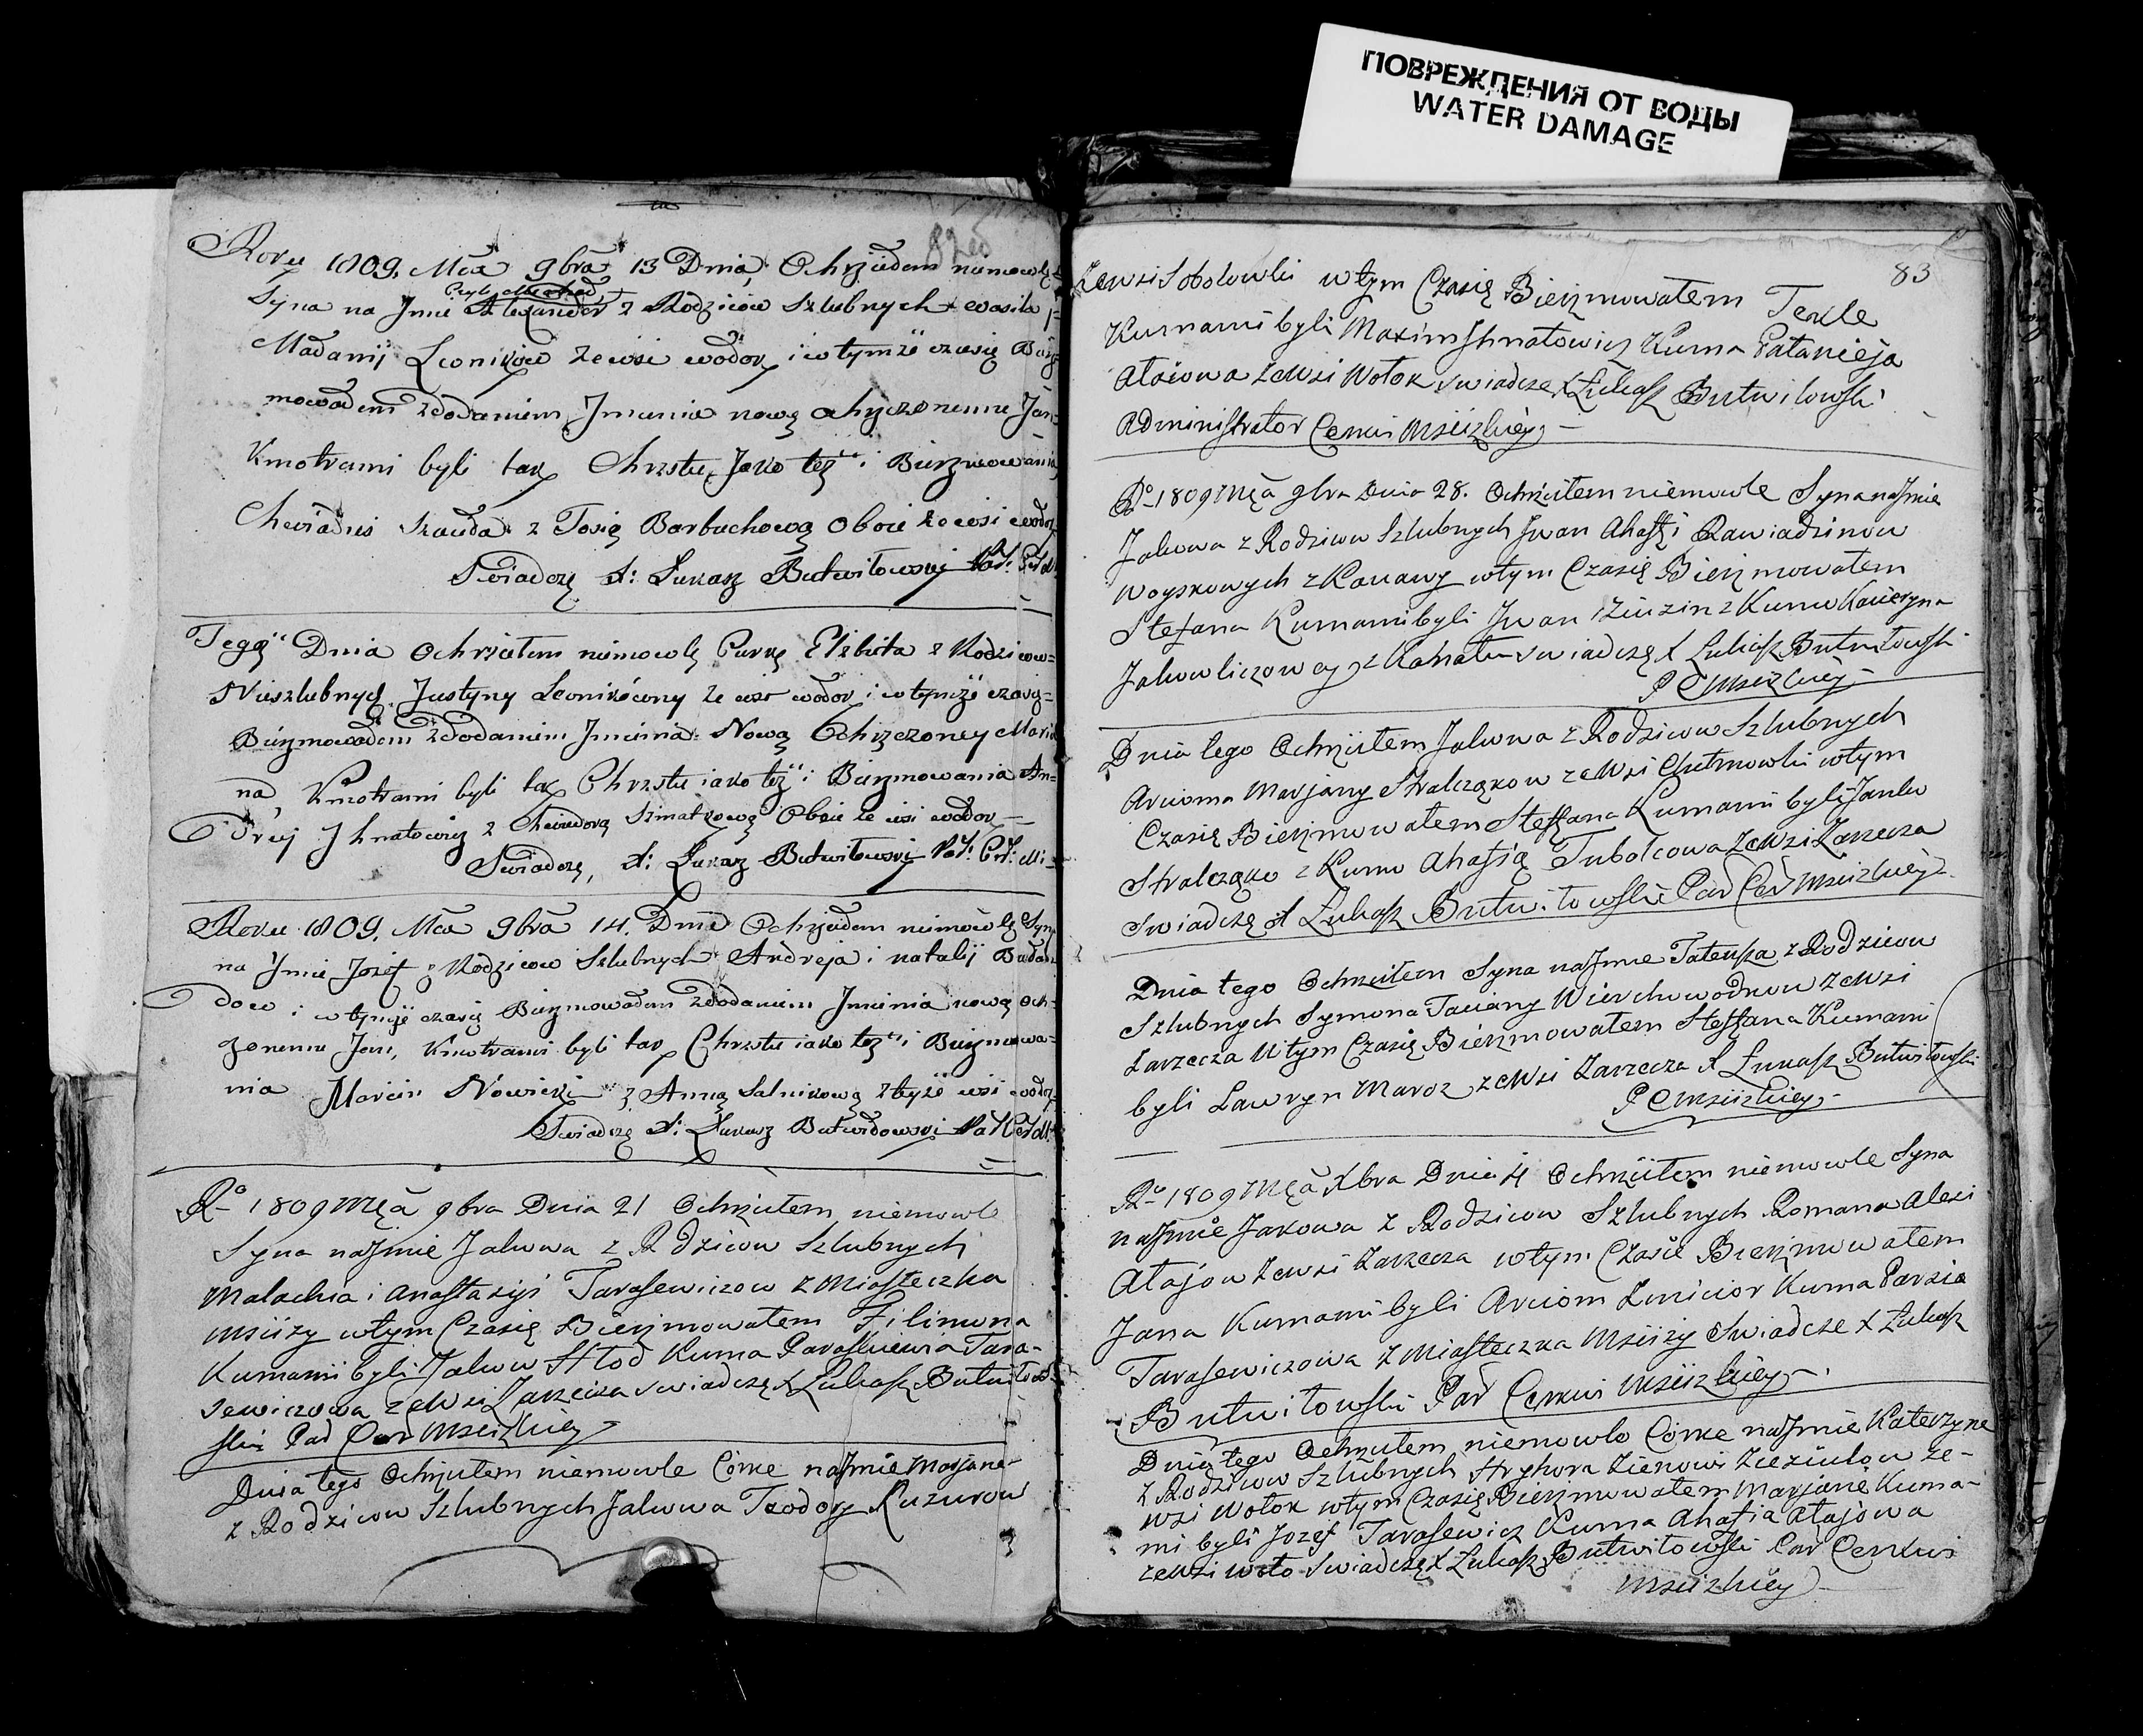 ПОВРЕЖДЕНИЯ ОТ ВОДЫ
WATER DAMAGE
82об
Roku 1809. Mča 9bra 13 Dnia Ochrzciłem niemowlę
Syna na Jmie Alexander z Rodziców Szlubnych Wasila i
Madanij Leoników ze wsi Wodok i w tymże czasię Bierz-
mowałem z dodaniem Jmienia nowo ochrzczonemu Jan
Kmotrami byli tak Chrztu Jako też i Bierzmowania
Szauda z Tosią Barbuchową Oboie ze wsi Wodok
Swiadczę X: Łukasz Butwiłowski
Tegoż Dnia Ochrzciłem niemowlę Curkę Elzbieta z Rodziców
Nieszlubnych Justyny Leonikówny ze wsi Wodok i w tymże czasię
Bierzmowałem z dodaniem Jmienia Nowo Ochrzczoney Maria
na, Kmotrami byli tak Chrztu iako też i Bierzmowania An-
drey Jhnatowicz z Chwiedorą Szmatkową Oboie ze wsi Wodok
Swiadczę, X: Łukasz Butwiłowski
Roku 1809. Mča 9bra 14. Dnia Ochrzciłem niemowlę Syn
na Jmie Jozef z Rodziców Szlubnych Andreja i natalij
dow i w tymże czasię Bierzmowałem z dodaniem Jmienia nowo och-
zonemu Jan, Kmotrami byli tak Chrztu iako też i Bierzmowa-
nia Marcin Nowicki z Anną Salnikową z teyże wsi Wodok
Swiadczę X: Łukasz Butwiłowski
Ro 1809 Mca 9bra Dnia 21 Ochrzciłem niemowle
Syna na Jmie Jakuwa z Rdzicow Szlubnych
Malachia i Anastazyi Tarasewiczow z Miasteczka
Msciży w tym Czasię Bierzmowałem Filimona
Kumami byli Jakuw Hłod Kuma Paraskiewia Tara-
sewiczowa ze Wsi Zarzecza swiadczę X Łukasz Butwiłow-
ski Par Cer Mscizkiey
Dnia tego Ochrzciłem niemowle Córke na Jmie Marjane
z Rodzicow Szlubnych Jakuwa Teodory Kuzurow
83
Zewsi Sobolowki w tym Czasię Bierzmowałem Tekle
Kumami byli Maxim Jhnatowicz Kuma Pałanieja
Atajowa ze Wsi Wołok swiadcze X Łukasz Butwiłowski
Administrator Cerkwi Mscizkiey
Ro 1809 Mca 9bra Dnia 28. Ochrzciłem niemowle Syna na Jmie
Jakuwa z Rodzicow Szlubnych Jwan Ahafii Rawiadzinow
Woyskowych z Kawany w tym Czasię Bierzmowałem
Stefana Kumami byli Jwan z Kumu Kacieryna
swiadczę X Łukasz Butwiłowski
P C Mscizkiey
Dnia tego Ochrzciłem Jakuwa z Rodzicow Szlubnych
Arcioma Marjany Stralcząkow ze Wsi w tym
Czasię Bierzmowałem Steffana Kumami byli Janko
Stralcząko z Kumo Ahafią Tubolcowa ze Wsi Zarzecza
swiadczę X Łukasz Butwiłowski Par Cer Mscizkiey
Dnia tego Ochrzciłem Syna na Jmie z Rodzicow
Szlubnych Symona Taciany Wierchowodkow ze Wsi
Zarzecza W tym Czasię Bierzmowałem Steffana Kumami
byli Ławryn Maroz ze Wsi Zarzecza X Łukasz Butwiłowski
P C Mscizkiey
Ro 1809 Mca Xbra Dnia 4 Ochrzciłem niemowle Syna
na Jmie Jakowa z Rodzicow Szlubnych Romana Alexi
Atajow ze Wsi Zarzecza w tym Czasie Bierzmowałem
Jana Kumami byli Arciom Kuma Parsia
Tarasewiczowa z Miasteczka Msciży Swiadcze X Łukasz
Butwiłowski Par Cerkwi Mscizkiey
Dnia tego Ochrzciłem niemowlo Córke na Jmie Katerzyne
z Rodzicow Szlubnych Hryhora Zienowi Zieziulow ze-
wsi Wołok w tym Czasię Bierzmowałem Marjanę Kuma-
mi byli Jozef Tarasewicz Kuma Ahafia Atajowa
ze Wsi Woło Swiadczę X Łukasz Butwiłowski Par Cerkwi
Mscizkiey